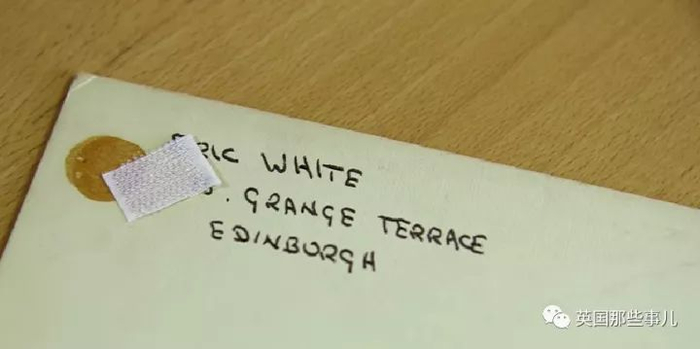 WHITE
GRANGE TERRACE
EDINBURGH
英国那些事儿